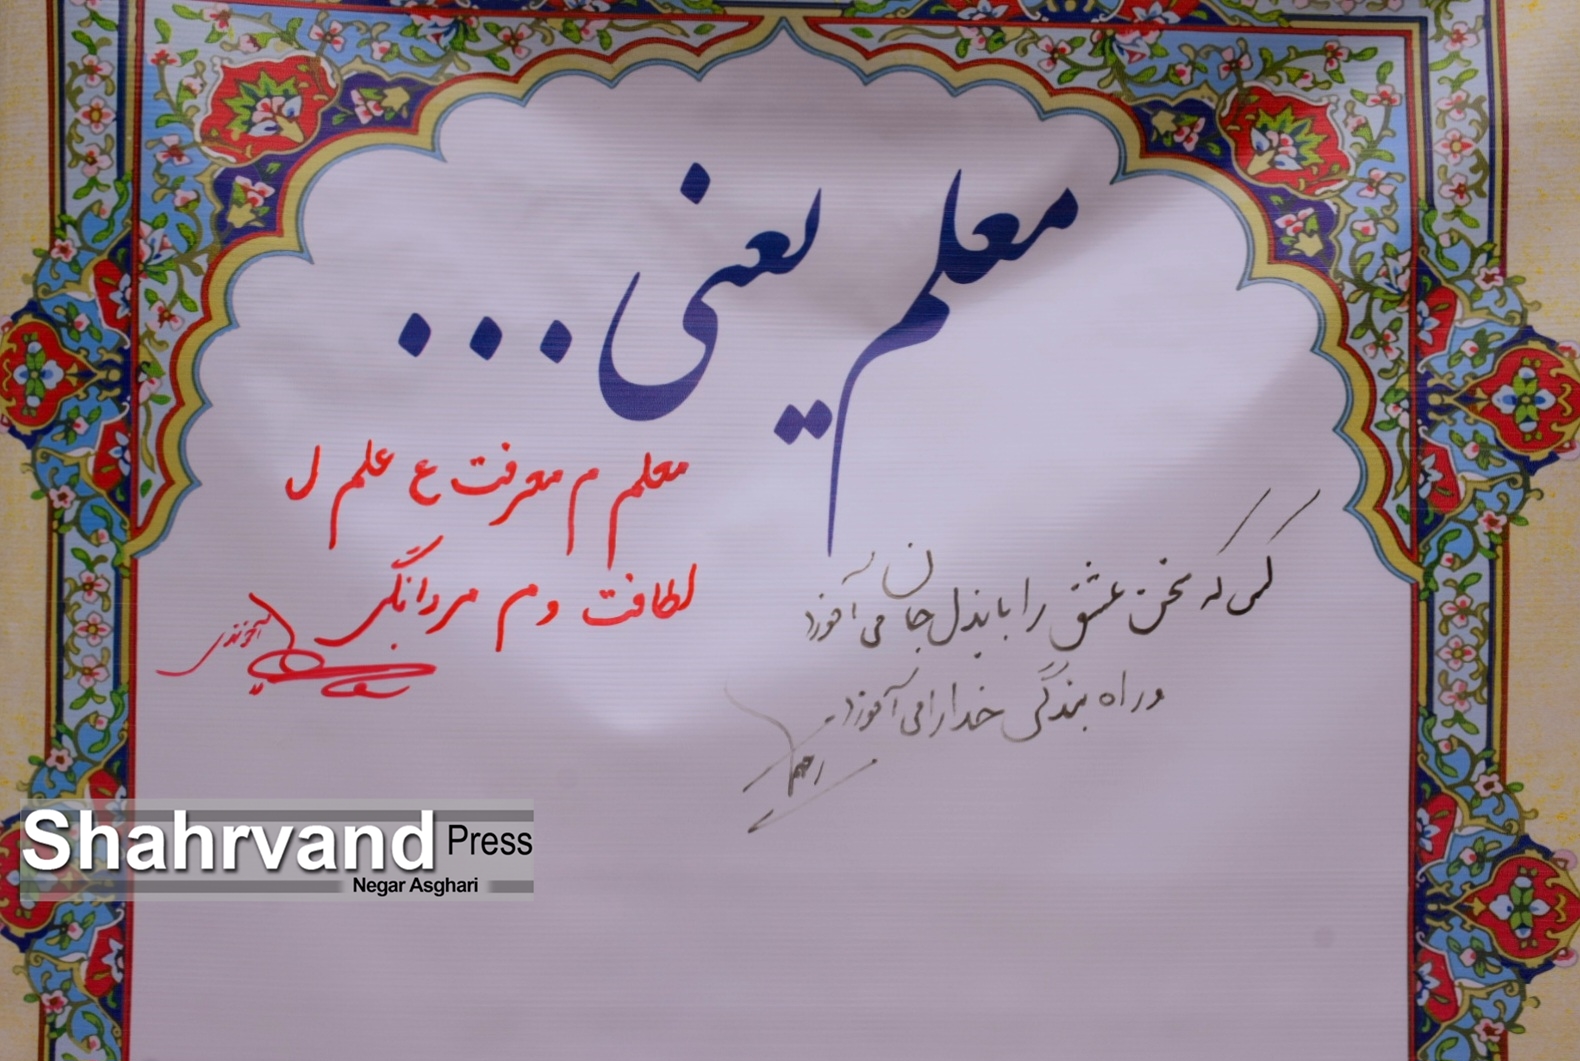 معلم یعنی...
کسی که سخن عشق را با بذل جان می آموزد
و راه بندگی خدا را می آموزد
معلم م معرفت ع علم ل
لطافت و م مردانگی
Shahrvand Press
Negar Asghari